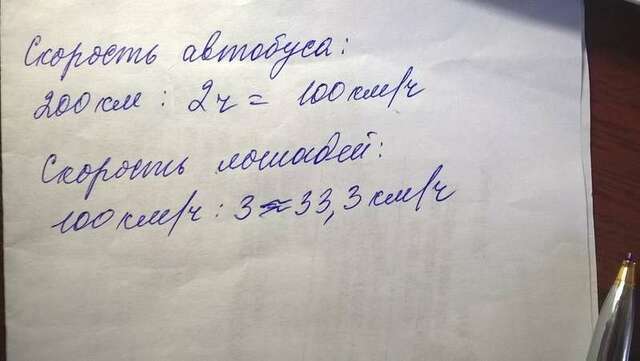 Скорость автобуса:
200 км : 2ч = 100 км/ч
Скорость лошадей:
100 км/ч : 3 ≈ 33,3 км/ч